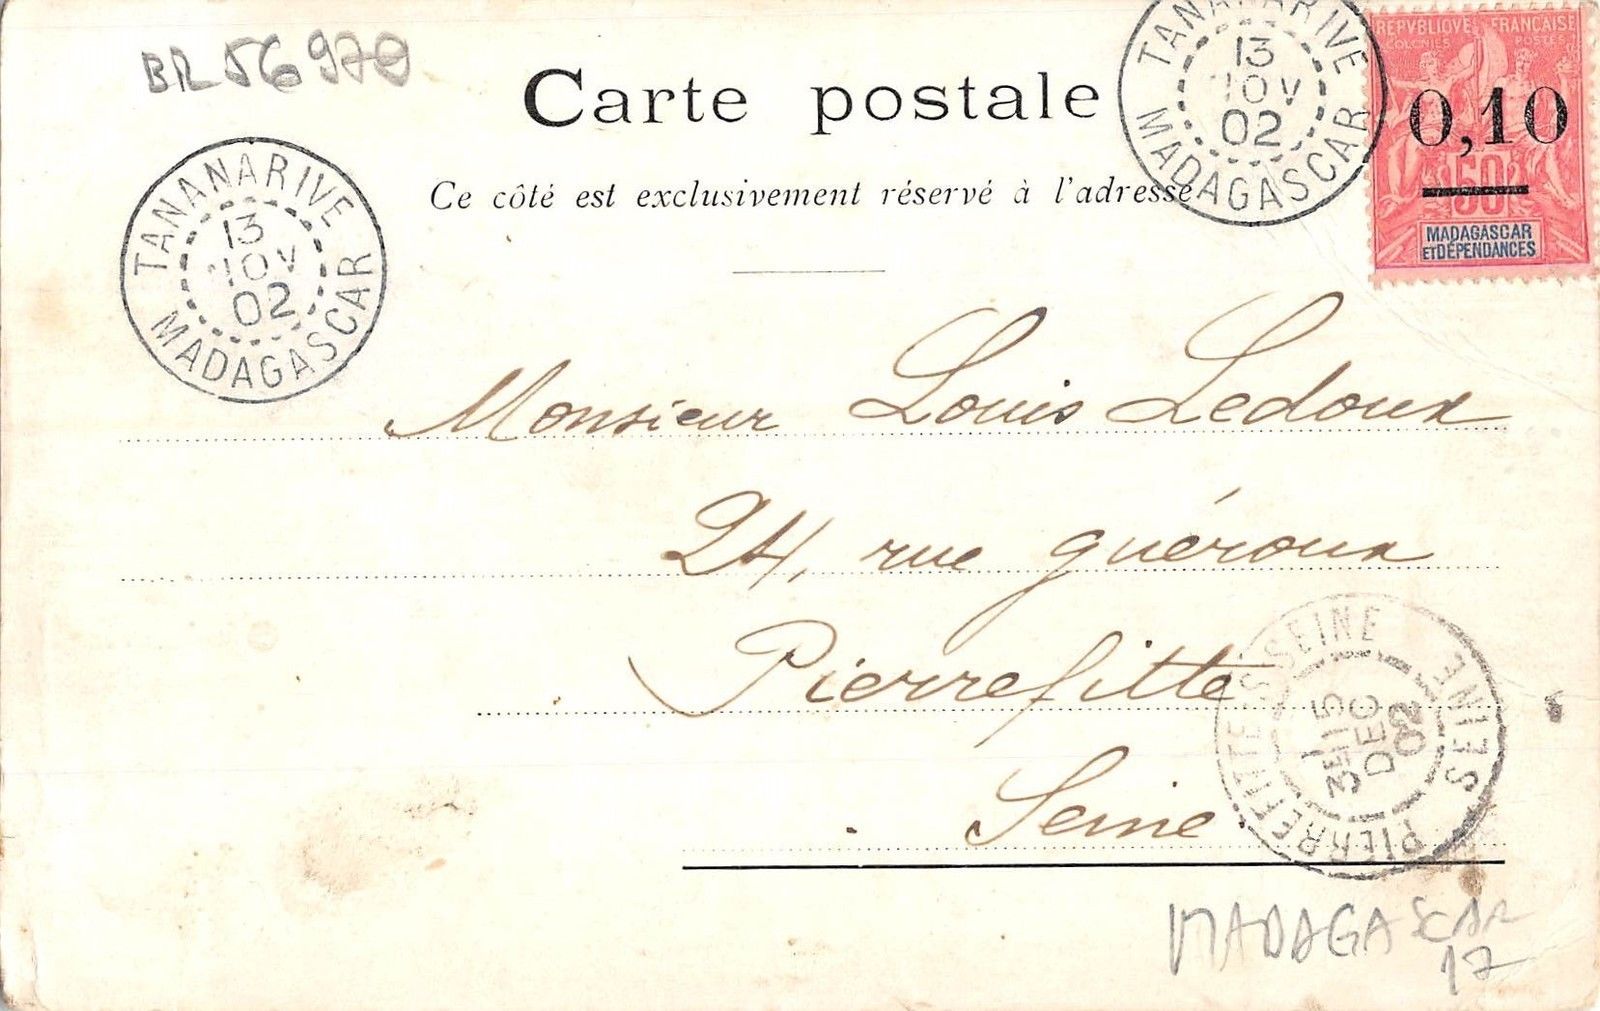 BR 56970
Carte postale
Ce côté est exclusivement réservé à l'adresse
TANANARIVE
13
NOV
02
MADAGASCAR
TANANARIVE
13
NOV
02
MADAGASCAR
REPUBLIQUE FRANÇAISE
COLONIES POSTES
0,10
50
MADAGASCAR
ET DÉPENDANCES
Monsieur Louis Ledoux
24, rue guéroux
Pierrefitte
Seine
PIERREFITTE S SEINE
3E 15
DEC
02
SEINE
MADAGASCAR
17